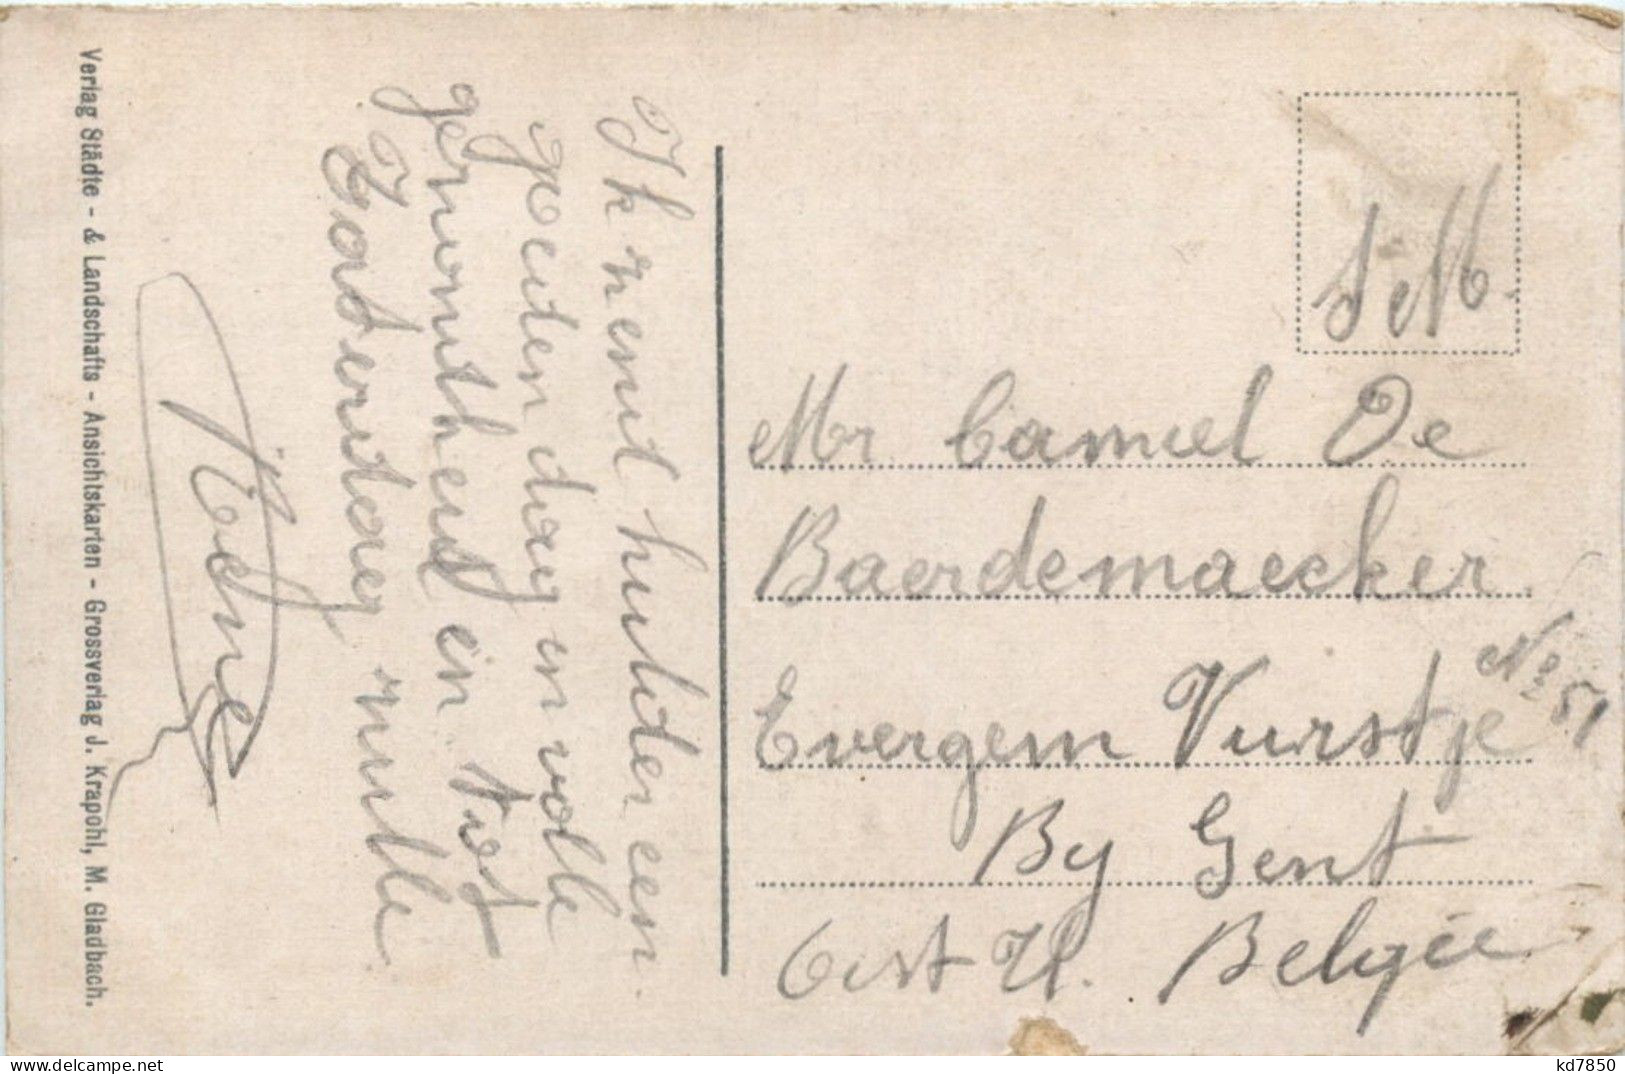 Ik zend hulder een
goeden dag en volle
gezondheid en tot
Zaterdag nutte
René
S.M.
Mr Camiel De
Baerdemaecker
Evergem Vurstje
No 51
By Gent
Oest Vl. Belgïe
Verlag Städte- & Landschafts-Ansichtskarten - Grossverlag J. Krapohl, M. Gladbach.
delcampe.net
kd7850